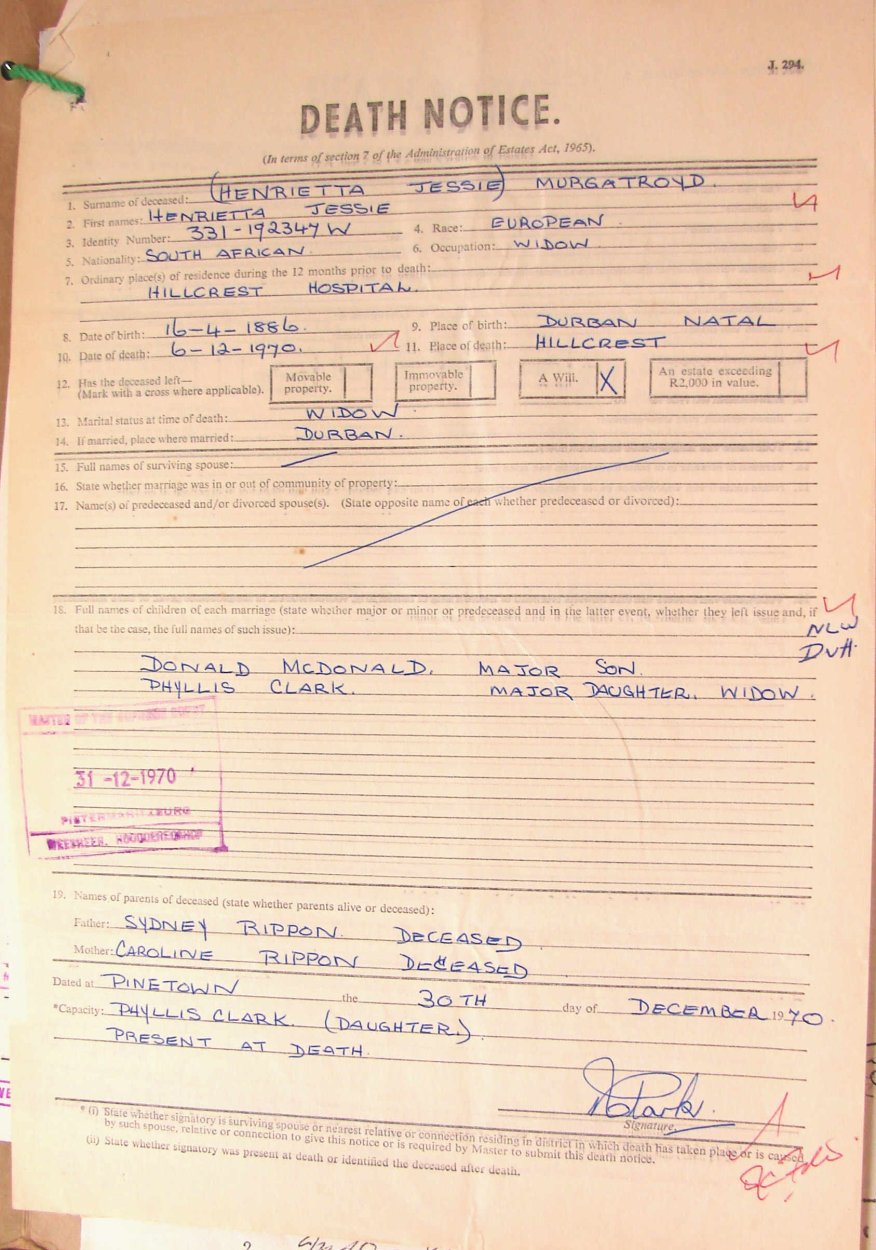 J. 294.
DEATH NOTICE.
(In terms of section 7 of the Administration of Estates Act, 1965).
1. Surname of deceased: (HENRIETTA JESSIE) MURGATROYD.
2. First names: HENRIETTA JESSIE
3. Identity Number: 331-192347 W 4. Race: EUROPEAN.
5. Nationality: SOUTH AFRICAN. 6. Occupation: WIDOW
7. Ordinary place(s) of residence during the 12 months prior to death:
HILLCREST HOSPITAL.
8. Date of birth: 16-4-1886. 9. Place of birth: DURBAN NATAL
10. Date of death: 6-12-1970. 11. Place of death: HILLCREST
12. Has the deceased left— (Mark with a cross where applicable). Movable property. Immovable property. A Will. X An estate exceeding R2,000 in value.
13. Marital status at time of death: WIDOW
14. If married, place where married: DURBAN.
15. Full names of surviving spouse:
16. State whether marriage was in or out of community of property:
17. Name(s) of predeceased and/or divorced spouse(s). (State opposite name of each whether predeceased or divorced):
18. Full names of children of each marriage (state whether major or minor or predeceased and in the latter event, whether they left issue and, if
that be the case, the full names of such issue):
NLW
DONALD McDONALD. MAJOR SON.
PHYLLIS CLARK. MAJOR DAUGHTER. WIDOW.
MASTER OF THE SUPREME COURT
31-12-1970
PIETERMARITZBURG
19. Names of parents of deceased (state whether parents alive or deceased):
Father: SYDNEY RIPPON. DECEASED.
Mother: CAROLINE RIPPON DECEASED
Dated at PINETOWN the 30TH day of DECEMBER 1970.
*Capacity: PHYLLIS CLARK. (DAUGHTER.)
PRESENT AT DEATH.
Signature.
* (i) State whether signatory is surviving spouse or nearest relative or connection residing in district in which death has taken place or is caused
by such spouse, relative or connection to give this notice or is required by Master to submit this death notice.
(ii) State whether signatory was present at death or identified the deceased after death.